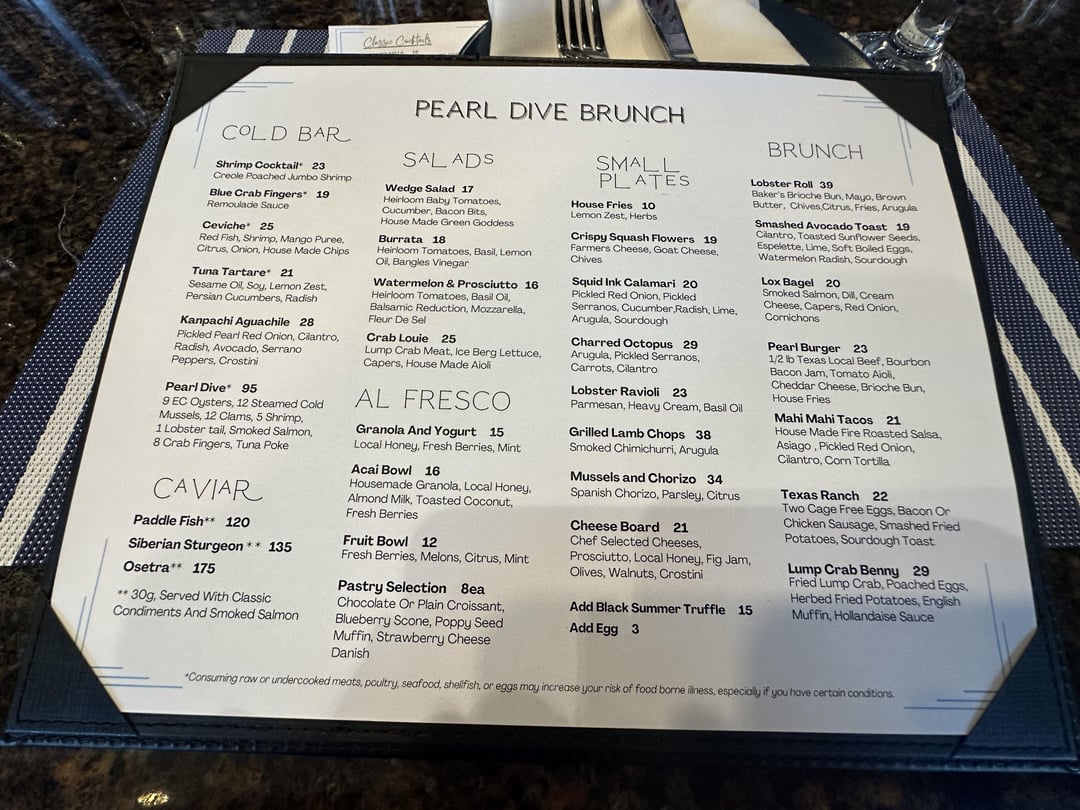 Classic Cocktails
PEARL DIVE BRUNCH
COLD BAR
Shrimp Cocktail* 23
Creole Poached Jumbo Shrimp
Blue Crab Fingers* 19
Remoulade Sauce
Ceviche* 25
Red Fish, Shrimp, Mango Puree,
Citrus, Onion, House Made Chips
Tuna Tartare* 21
Sesame Oil, Soy, Lemon Zest,
Persian Cucumbers, Radish
Kanpachi Aguachile 28
Pickled Pearl Red Onion, Cilantro,
Radish, Avocado, Serrano
Peppers, Crostini
Pearl Dive* 95
9 EC Oysters, 12 Steamed Cold
Mussels, 12 Clams, 5 Shrimp,
1 Lobster tail, Smoked Salmon,
8 Crab Fingers, Tuna Poke
CAVIAR
Paddle Fish** 120
Siberian Sturgeon ** 135
Osetra** 175
** 30g, Served With Classic
Condiments And Smoked Salmon
SALADS
Wedge Salad 17
Heirloom Baby Tomatoes,
Cucumber, Bacon Bits,
House Made Green Goddess
Burrata 18
Heirloom Tomatoes, Basil, Lemon
Oil, Bangles Vinegar
Watermelon & Prosciutto 16
Heirloom Tomatoes, Basil Oil,
Balsamic Reduction, Mozzarella,
Fleur De Sel
Crab Louie 25
Lump Crab Meat, Ice Berg Lettuce,
Capers, House Made Aioli
AL FRESCO
Granola And Yogurt 15
Local Honey, Fresh Berries, Mint
Acai Bowl 16
Housemade Granola, Local Honey,
Almond Milk, Toasted Coconut,
Fresh Berries
Fruit Bowl 12
Fresh Berries, Melons, Citrus, Mint
Pastry Selection 8ea
Chocolate Or Plain Croissant,
Blueberry Scone, Poppy Seed
Muffin, Strawberry Cheese
Danish
SMALL
PLATES
House Fries 10
Lemon Zest, Herbs
Crispy Squash Flowers 19
Farmers Cheese, Goat Cheese,
Chives
Squid Ink Calamari 20
Pickled Red Onion, Pickled
Serranos, Cucumber,Radish, Lime,
Arugula, Sourdough
Charred Octopus 29
Arugula, Pickled Serranos,
Carrots, Cilantro
Lobster Ravioli 23
Parmesan, Heavy Cream, Basil Oil
Grilled Lamb Chops 38
Smoked Chimichurri, Arugula
Mussels and Chorizo 34
Spanish Chorizo, Parsley, Citrus
Cheese Board 21
Chef Selected Cheeses,
Prosciutto, Local Honey, Fig Jam,
Olives, Walnuts, Crostini
Add Black Summer Truffle 15
Add Egg 3
BRUNCH
Lobster Roll 39
Baker's Brioche Bun, Mayo, Brown
Butter, Chives,Citrus, Fries, Arugula
Smashed Avocado Toast 19
Cilantro, Toasted Sunflower Seeds,
Espelette, Lime, Soft Boiled Eggs,
Watermelon Radish, Sourdough
Lox Bagel 20
Smoked Salmon, Dill, Cream
Cheese, Capers, Red Onion,
Cornichons
Pearl Burger 23
1/2 lb Texas Local Beef, Bourbon
Bacon Jam, Tomato Aioli,
Cheddar Cheese, Brioche Bun,
House Fries
Mahi Mahi Tacos 21
House Made Fire Roasted Salsa,
Asiago , Pickled Red Onion,
Cilantro, Corn Tortilla
Texas Ranch 22
Two Cage Free Eggs, Bacon Or
Chicken Sausage, Smashed Fried
Potatoes, Sourdough Toast
Lump Crab Benny 29
Fried Lump Crab, Poached Eggs,
Herbed Fried Potatoes, English
Muffin, Hollandaise Sauce
*Consuming raw or undercooked meats, poultry, seafood, shellfish, or eggs may increase your risk of food borne illness, especially if you have certain conditions.